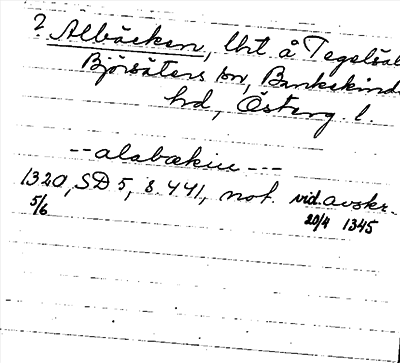 ? Albäcken, lht å Tegelsäl
Björsäters sn, Bankekinds
hd, Österg. l.
--alabækiu---
1320, SD 5, s. 441, not. vid. avskr.
5/6 20/4 1345